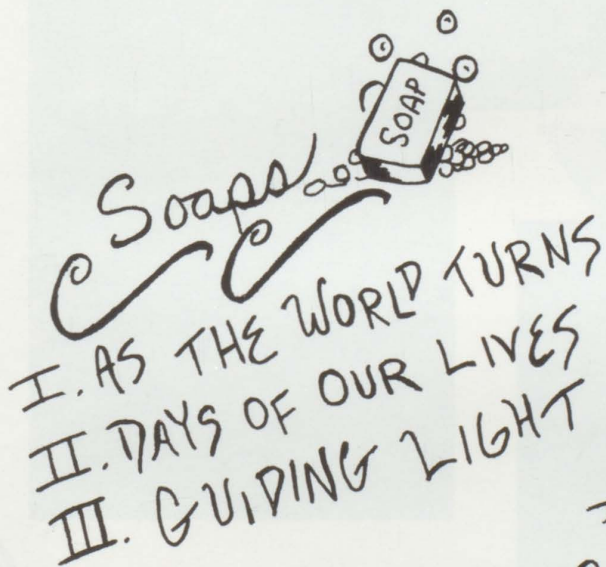 SOAP
Soaps
I. AS THE WORLD TURNS
II. DAYS OF OUR LIVES
III. GUIDING LIGHT